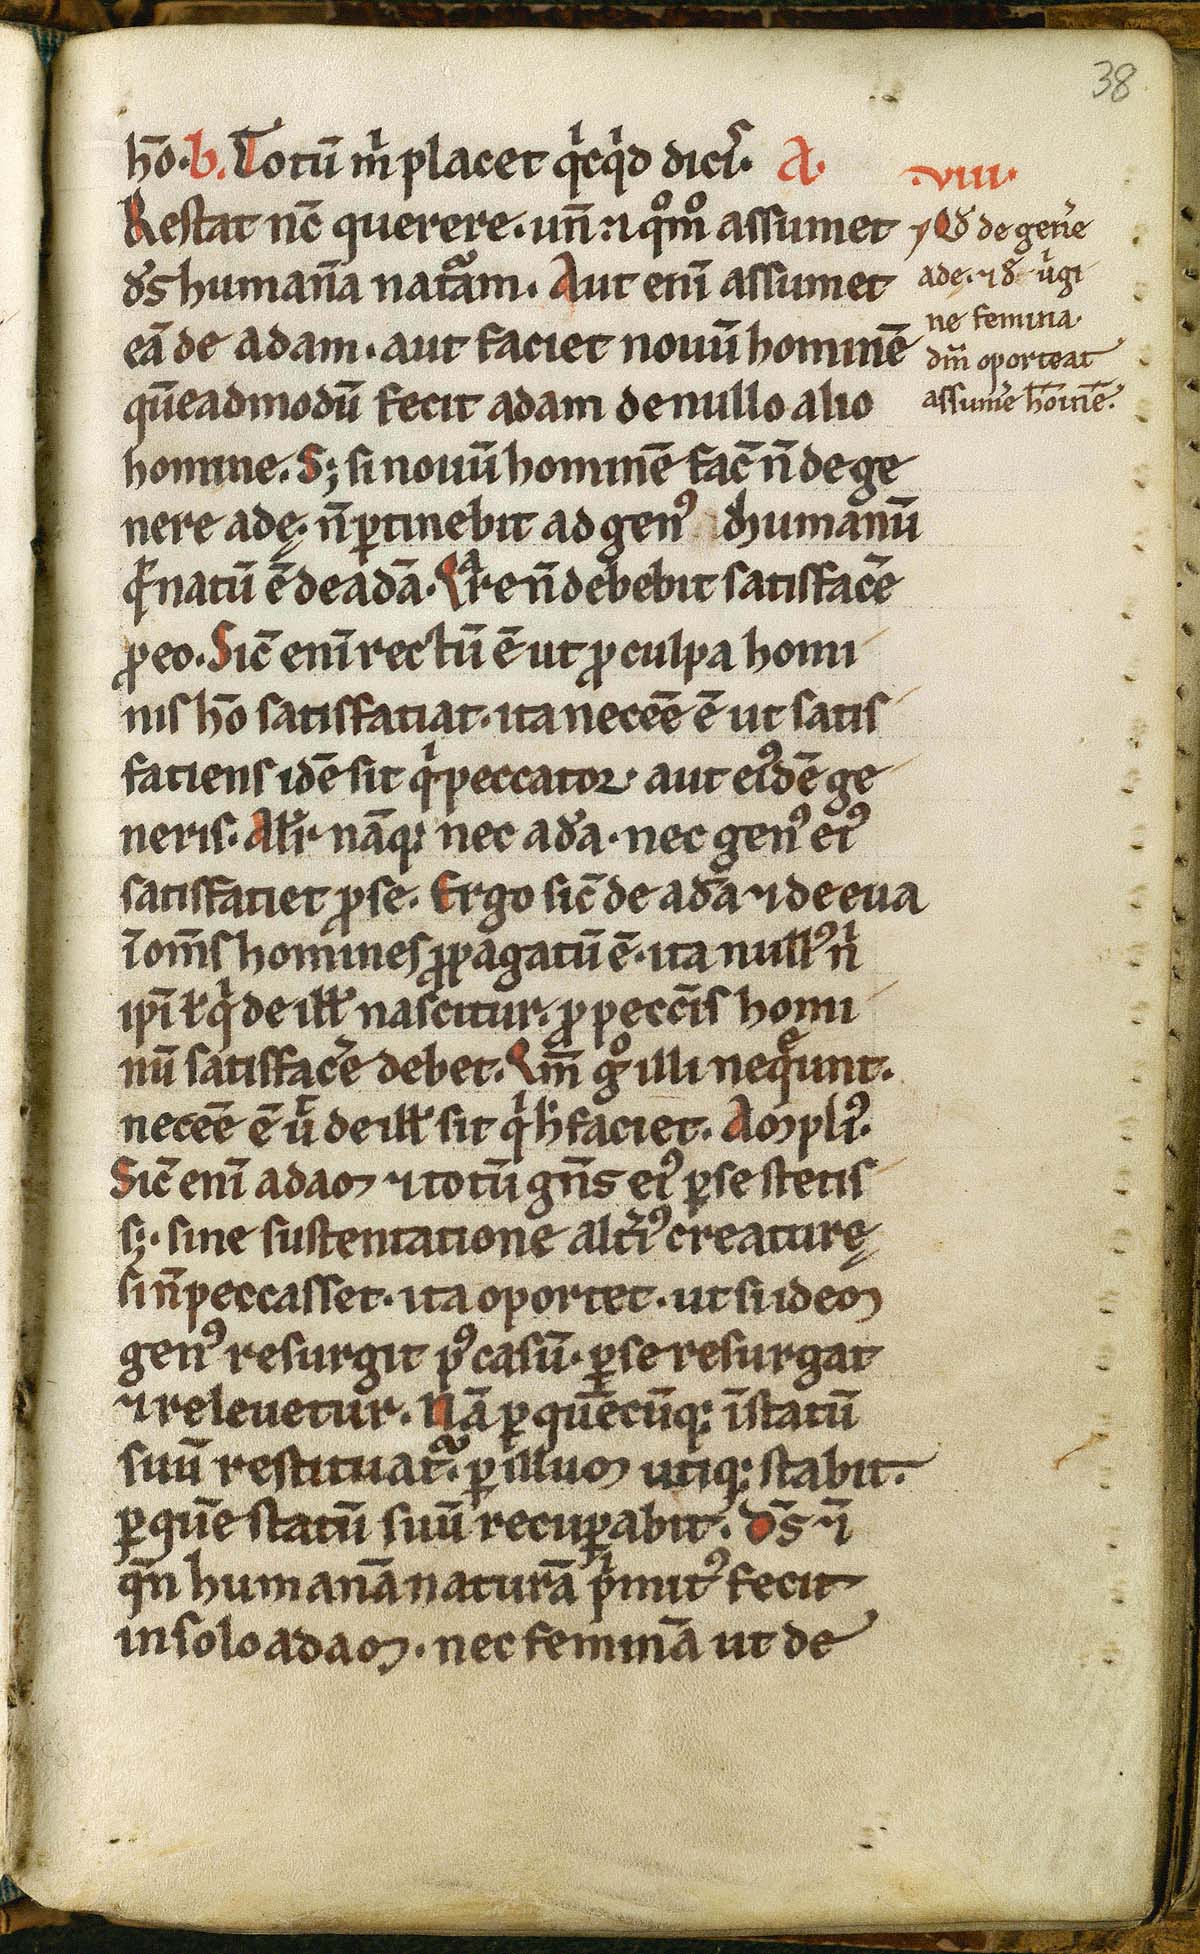 38
hōo. b. Totū m̄ placet qͥcqͥd dicꝭ. A.
Restat nc̄ querere. un̄ ⁊ qͦmͦ assumet
dꝰs humanā natͣam. Aut enī assumet
eā de adam. aut faciet nouū hominē
quēadmodū fecit adam de nullo alio
homine. Sꝫ si nouū hominē fac̄ n̄ de ge
nere adę. n̄ ꝑtinebit ad genꝰ humanū
qͥ natū ē de adā. Qͣre n̄ debebit satisface᷑
ꝓ eo. Sic̄ enī rectū ē ut ꝓ culpa homi
nis hō satisfatiat. ita necēe ē ut satis
fatiens idē sit qͥ peccator aut eiꝰdē ge
neris. Alit᷑ nāqꝫ nec adā. nec genꝰ eiꝰ
satisfatiet ꝓ se. Ergo sic̄ de adā ⁊ de eua
ī om̄s homines ꝓpagatū ē. ita nullꝰ nͥ
ipī ł qͥ de illꝭ nascitur. ꝓ pecc̄is homi
nū satisface᷑ debet. Qm̄ gͦ illi nequeunt.
necēe ē ut de illꝭ sit qͥ h faciet. Ampliꝰ.
Sic̄ enī adam ⁊ totū gn̄s eiꝰ ꝑ se stetis
sꝫ. sine sustentatione altiꝰ creaturę
si n̄ peccasset. ita oportet. ut si idem
genꝰ resurgit pꝰ casū. ꝑ se resurgat
⁊ releuetur. Nā ꝑ quēcūqꝫ ī statū
suū restituat᷑. ꝑ illum utiqꝫ stabit.
ꝑ quē statū suū recuꝑabit. Ds̄ ⁊ī
qn̄ humanā naturā pͥmitꝰ fecit
in solo adam. nec feminā ut de
.VIII.
Qd de gene᷑e
ade. ⁊ d uͥgi
ne femina
dm̄ oporteat
assume᷑e hōinē.